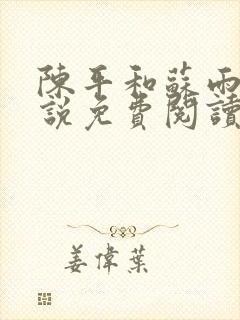 陳平和蘇雨
說免費閱讀
姜偉葉